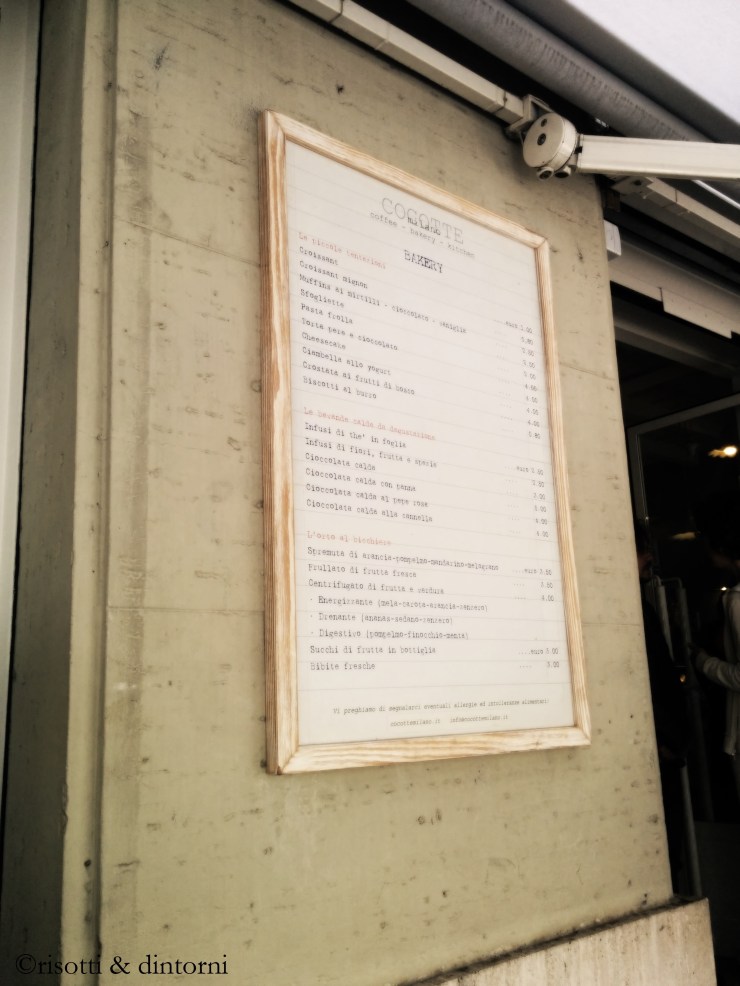 COCOTTE
MILANO
coffee - bakery - kitchen
BAKERY
Le piccole tentazioni
Croissant
Croissant mignon
Muffins ai mirtilli - cioccolato - vaniglia
Sfogliette
Pasta frolla
Torta pere e cioccolato
Cheesecake
Ciambella allo yogurt
Crostata ai frutti di bosco
Biscotti al burro
Le bevande calde da degustazione
Infusi di the' in foglia
Infusi di fiori, frutta e spezie
Cioccolata calda
Cioccolata calda con panna
Cioccolata calda al pepe rosa
Cioccolata calda alla cannella
L'orto al bicchiere
Spremuta di arancia-pompelmo-mandarino-melograno
Frullato di frutta fresca
Centrifugato di frutta e verdura
- Energizzante (mela-carota-arancia-zenzero)
- Drenante (ananas-sedano-zenzero)
- Digestivo (pompelmo-finocchio-menta)
Succhi di frutta in bottiglia
Bibite fresche
Vi preghiamo di segnalarci eventuali allergie ed intolleranze alimentari
cocottemilano.it info@cocottemilano.it
©risotti & dintorni